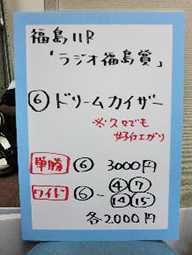 福島11R
「ラジオ福島賞」
⑥ドリームカイザー
※久々でも
好仕上がり
単勝 ⑥ 3000円
ワイド ⑥-④⑦
⑭⑮
各2000円